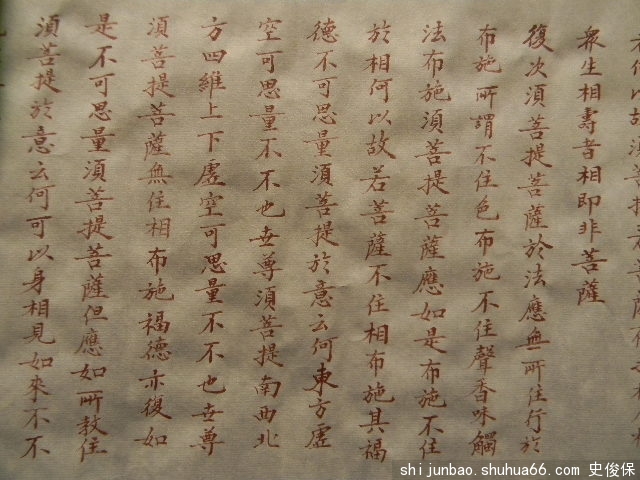 何以故須菩提若菩薩
衆生相壽者相即非菩薩
復次須菩提菩薩於法應無所住行於
布施所謂不住色布施不住聲香味觸
法布施須菩提菩薩應如是布施不住
於相何以故若菩薩不住相布施其福
德不可思量須菩提於意云何東方虛
空可思量不不也世尊須菩提南西北
方四維上下虛空可思量不不也世尊
須菩提菩薩無住相布施福德亦復如
是不可思量須菩提菩薩但應如所教住
須菩提於意云何可以身相見如來不不
shijunbao.shuhua66.com 史俊保